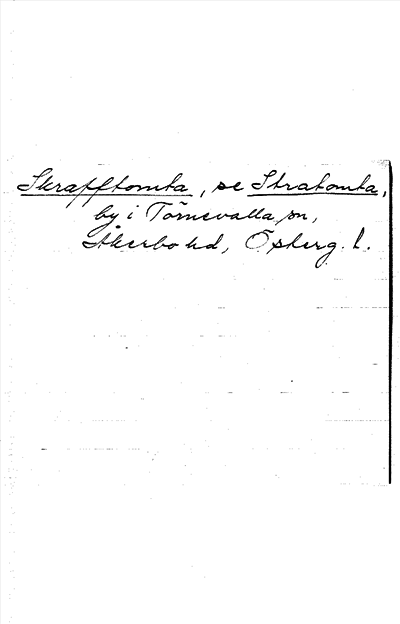 Skrafftomta, se Stratomta,
by i Törnevalla sn,
Åkerbo hd, Östergötl.